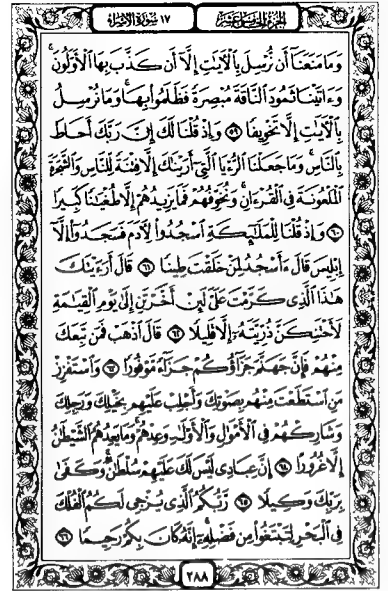 الجزء الخامس عشر
١٧ سورة الإسراء
وَمَا مَنَعَنَآ أَن نُّرْسِلَ بِٱلْءَايَٰتِ إِلَّآ أَن كَذَّبَ بِهَا ٱلْأَوَّلُونَۚ
وَءَاتَيْنَا ثَمُودَ ٱلنَّاقَةَ مُبْصِرَةً فَظَلَمُوا۟ بِهَاۚ وَمَا نُرْسِلُ
بِٱلْءَايَٰتِ إِلَّا تَخْوِيفًا ٥٩ وَإِذْ قُلْنَا لَكَ إِنَّ رَبَّكَ أَحَاطَ
بِٱلنَّاسِۚ وَمَا جَعَلْنَا ٱلرُّءْيَا ٱلَّتِىٓ أَرَيْنَٰكَ إِلَّا فِتْنَةً لِّلنَّاسِ وَٱلشَّجَرَةَ
ٱلْمَلْعُونَةَ فِى ٱلْقُرْءَانِۚ وَنُخَوِّفُهُمْ فَمَا يَزِيدُهُمْ إِلَّا طُغْيَٰنًا كَبِيرًا
٦٠ وَإِذْ قُلْنَا لِلْمَلَٰٓئِكَةِ ٱسْجُدُوا۟ لِءَادَمَ فَسَجَدُوٓا۟ إِلَّآ
إِبْلِيسَ قَالَ ءَأَسْجُدُ لِمَنْ خَلَقْتَ طِينًا ٦١ قَالَ أَرَءَيْتَكَ
هَٰذَا ٱلَّذِى كَرَّمْتَ عَلَىَّ لَئِنْ أَخَّرْتَنِ إِلَىٰ يَوْمِ ٱلْقِيَٰمَةِ
لَأَحْتَنِكَنَّ ذُرِّيَّتَهُۥٓ إِلَّا قَلِيلًا ٦٢ قَالَ ٱذْهَبْ فَمَن تَبِعَكَ
مِنْهُمْ فَإِنَّ جَهَنَّمَ جَزَآؤُكُمْ جَزَآءً مَّوْفُورًا ٦٣ وَٱسْتَفْزِزْ
مَنِ ٱسْتَطَعْتَ مِنْهُم بِصَوْتِكَ وَأَجْلِبْ عَلَيْهِم بِخَيْلِكَ وَرَجِلِكَ
وَشَارِكْهُمْ فِى ٱلْأَمْوَٰلِ وَٱلْأَوْلَٰدِ وَعِدْهُمْۚ وَمَا يَعِدُهُمُ ٱلشَّيْطَٰنُ
إِلَّا غُرُورًا ٦٤ إِنَّ عِبَادِى لَيْسَ لَكَ عَلَيْهِمْ سُلْطَٰنٌۚ وَكَفَىٰ
بِرَبِّكَ وَكِيلًا ٦٥ رَّبُّكُمُ ٱلَّذِى يُزْجِى لَكُمُ ٱلْفُلْكَ
فِى ٱلْبَحْرِ لِتَبْتَغُوا۟ مِن فَضْلِهِۦٓۚ إِنَّهُۥ كَانَ بِكُمْ رَحِيمًا ٦٦
٢٨٨